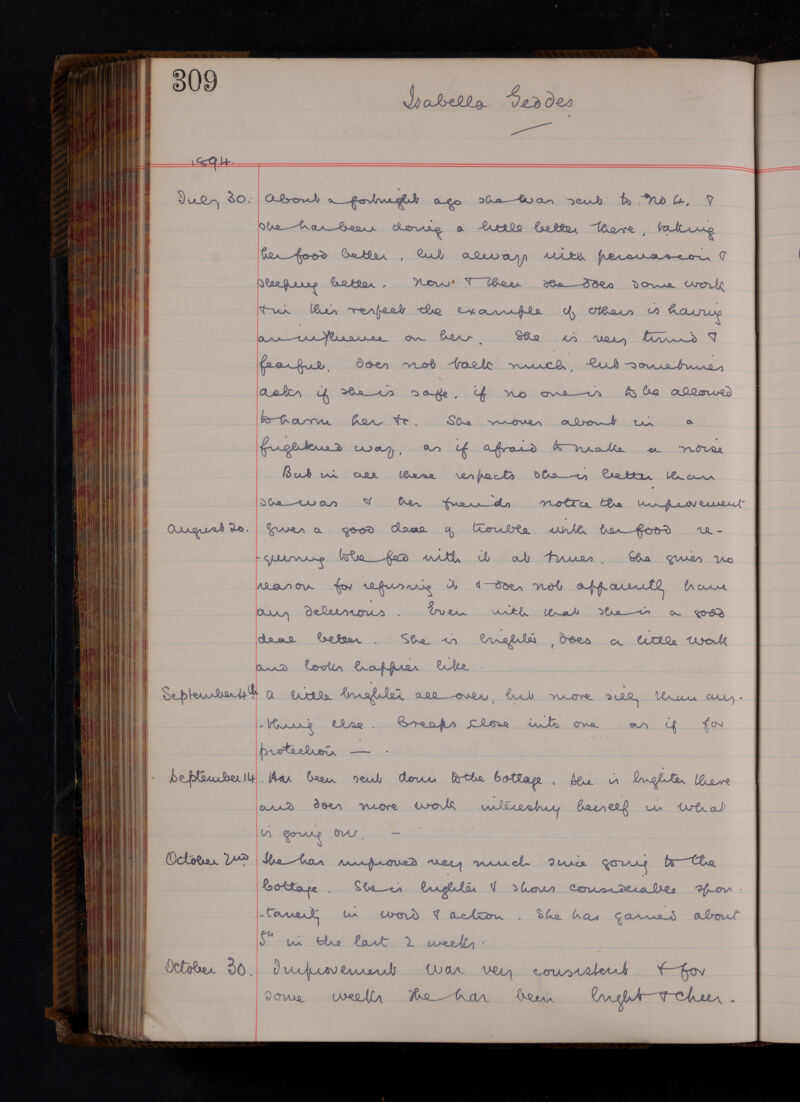 309
Isabella Geddes
1894.
July 30. About a fortnight ago she was sent to No 4. &
she has been doing a little better there, taking
her food better, but always with persuasion &
sleeping better. Now & then she does some work
& in this respect the example of others is having
an influence on her. She is very timid &
fearful, does not talk much, but sometimes
asks if she is safe, if no one is to be allowed
to harm her &c. She moves about in a
frightened way, as if afraid to make a noise
But in all these respects she is better than
she was & her friends notice the improvement
August 20. Gives a good deal of trouble with her food re-
-quiring to be fed with it at times. She gives no
reason for refusing it & does not apparently have
any delusions. Even with that she is a good
deal better. She is brighter, does a little work
and looks happier like.
September 4th A little brighter all over, but more silly than any-
-thing else. Creeps close into one as if for
protection — .
September 14. Has been sent down to the Cottage. She is brighter there
and does more work interesting herself in what
is going on. —
October 2nd She has improved very much since going to the
Cottage. She is brighter & shows considerable spon-
-taneity in word & action. She has gained about
5 in the last 2 weeks.
October 30. Improvement was very consistent & for
some weeks she has been bright & cheer-